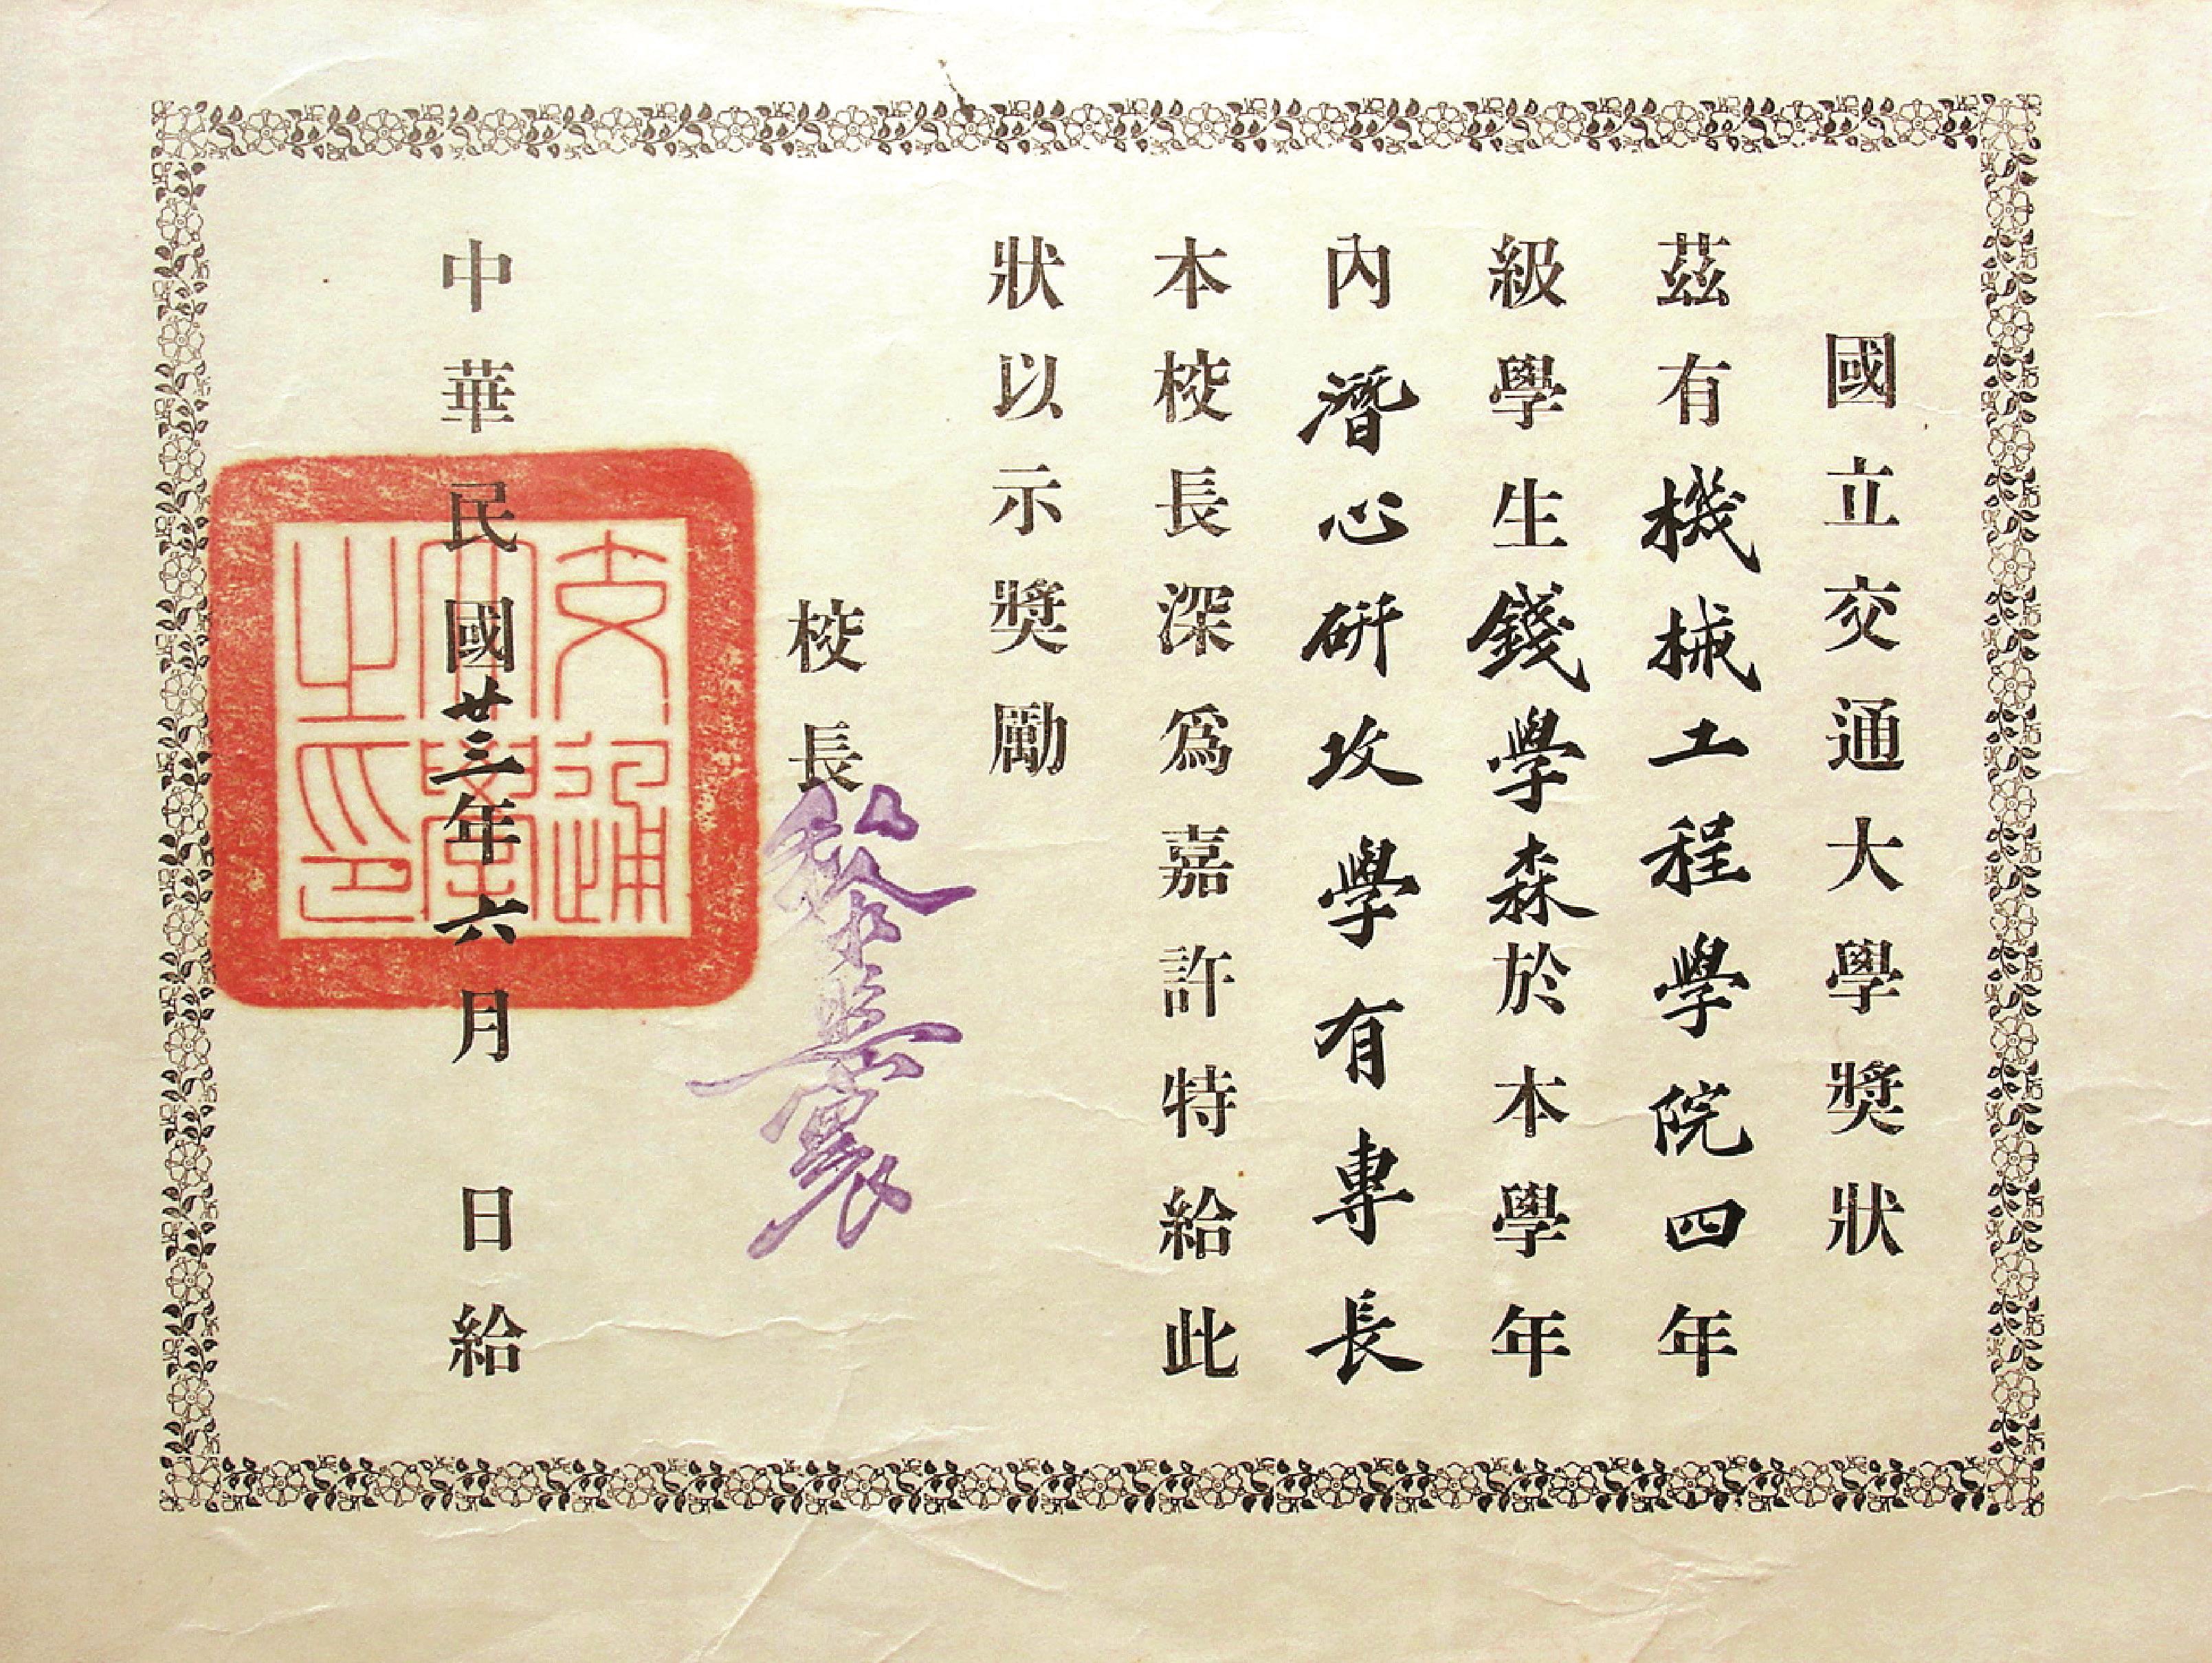 國立交通大學獎狀
茲有機械工程學院四年
級學生錢學森於本學年
內潛心研攻學有專長
本校長深爲嘉許特給此
狀以示獎勵
校長黎照寰
中華民國廿三年六月 日給
交通
大學
之印